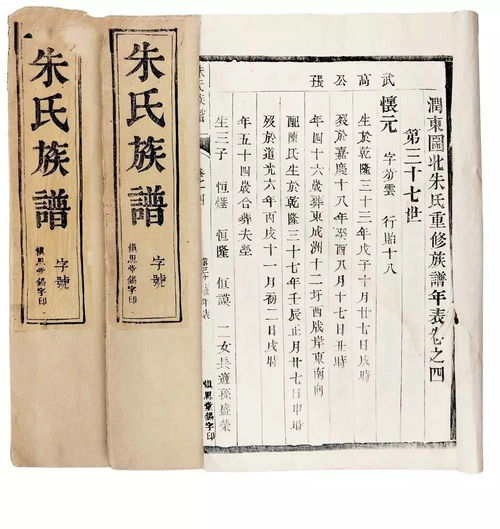 潤東圖北朱氏重修族譜年表卷之四
第三十七世
懷元 字芳雲 行貽十八
武 高 公 張
生於乾隆三十三年戊子十月廿七日戌時
歿於嘉慶十八年癸酉八月十七日丑時
年四十六歲葬東成洲十二圩西成岸東南向
配陳氏生於乾隆三十七年壬辰正月廿七日申時
歿於道光六年丙戌十一月初二日戌時
年五十四歲合葬夫塋
生三子 恒 恒隆 恒謨 二女長適孫盛榮
朱氏族譜 卷之四
年表
慎思堂 字印
朱氏族譜
字號
慎思堂 字印
朱氏族譜
字號
慎思堂 字印